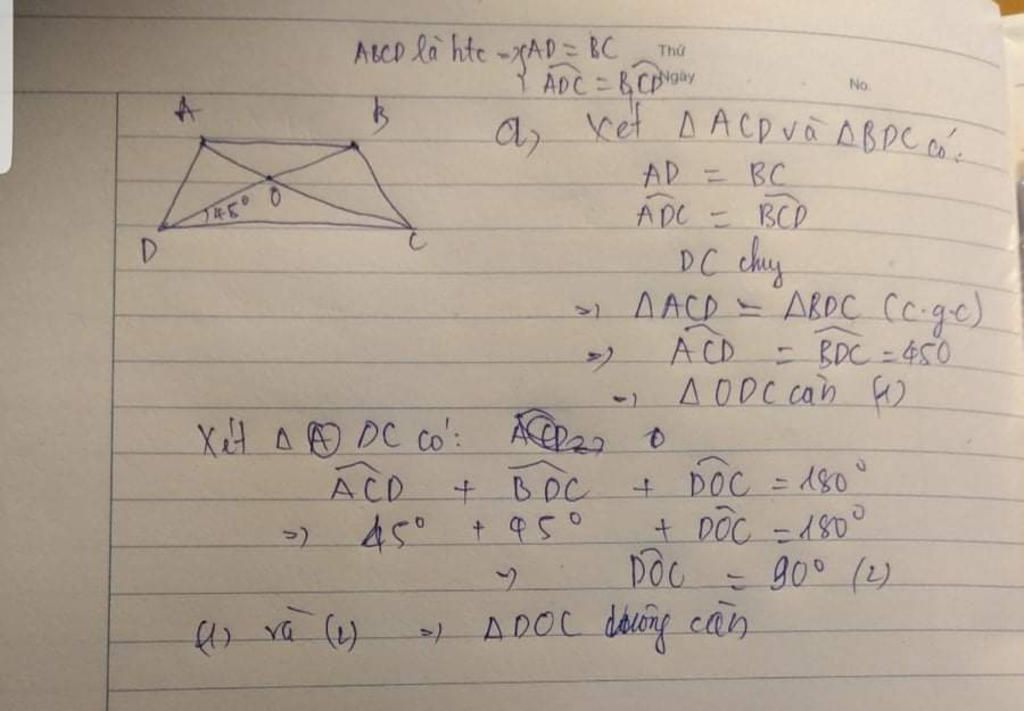 ABCD là htc -> { AD = BC Thứ
{ ADC = BCD Ngày No.
A B
O
45°
D C
a, Xét Δ ACD và Δ BDC có:
AD = BC
ADC = BCD
DC chung
=> Δ ACD = Δ BDC (c.g.c)
=> ACD = BDC = 450
=> Δ ODC cân (1)
Xét Δ A DC có: O
ACD + BDC + DOC = 180°
=> 45° + 45° + DOC = 180°
=> DOC = 90° (2)
(1) và (2) => Δ DOC vuông cân